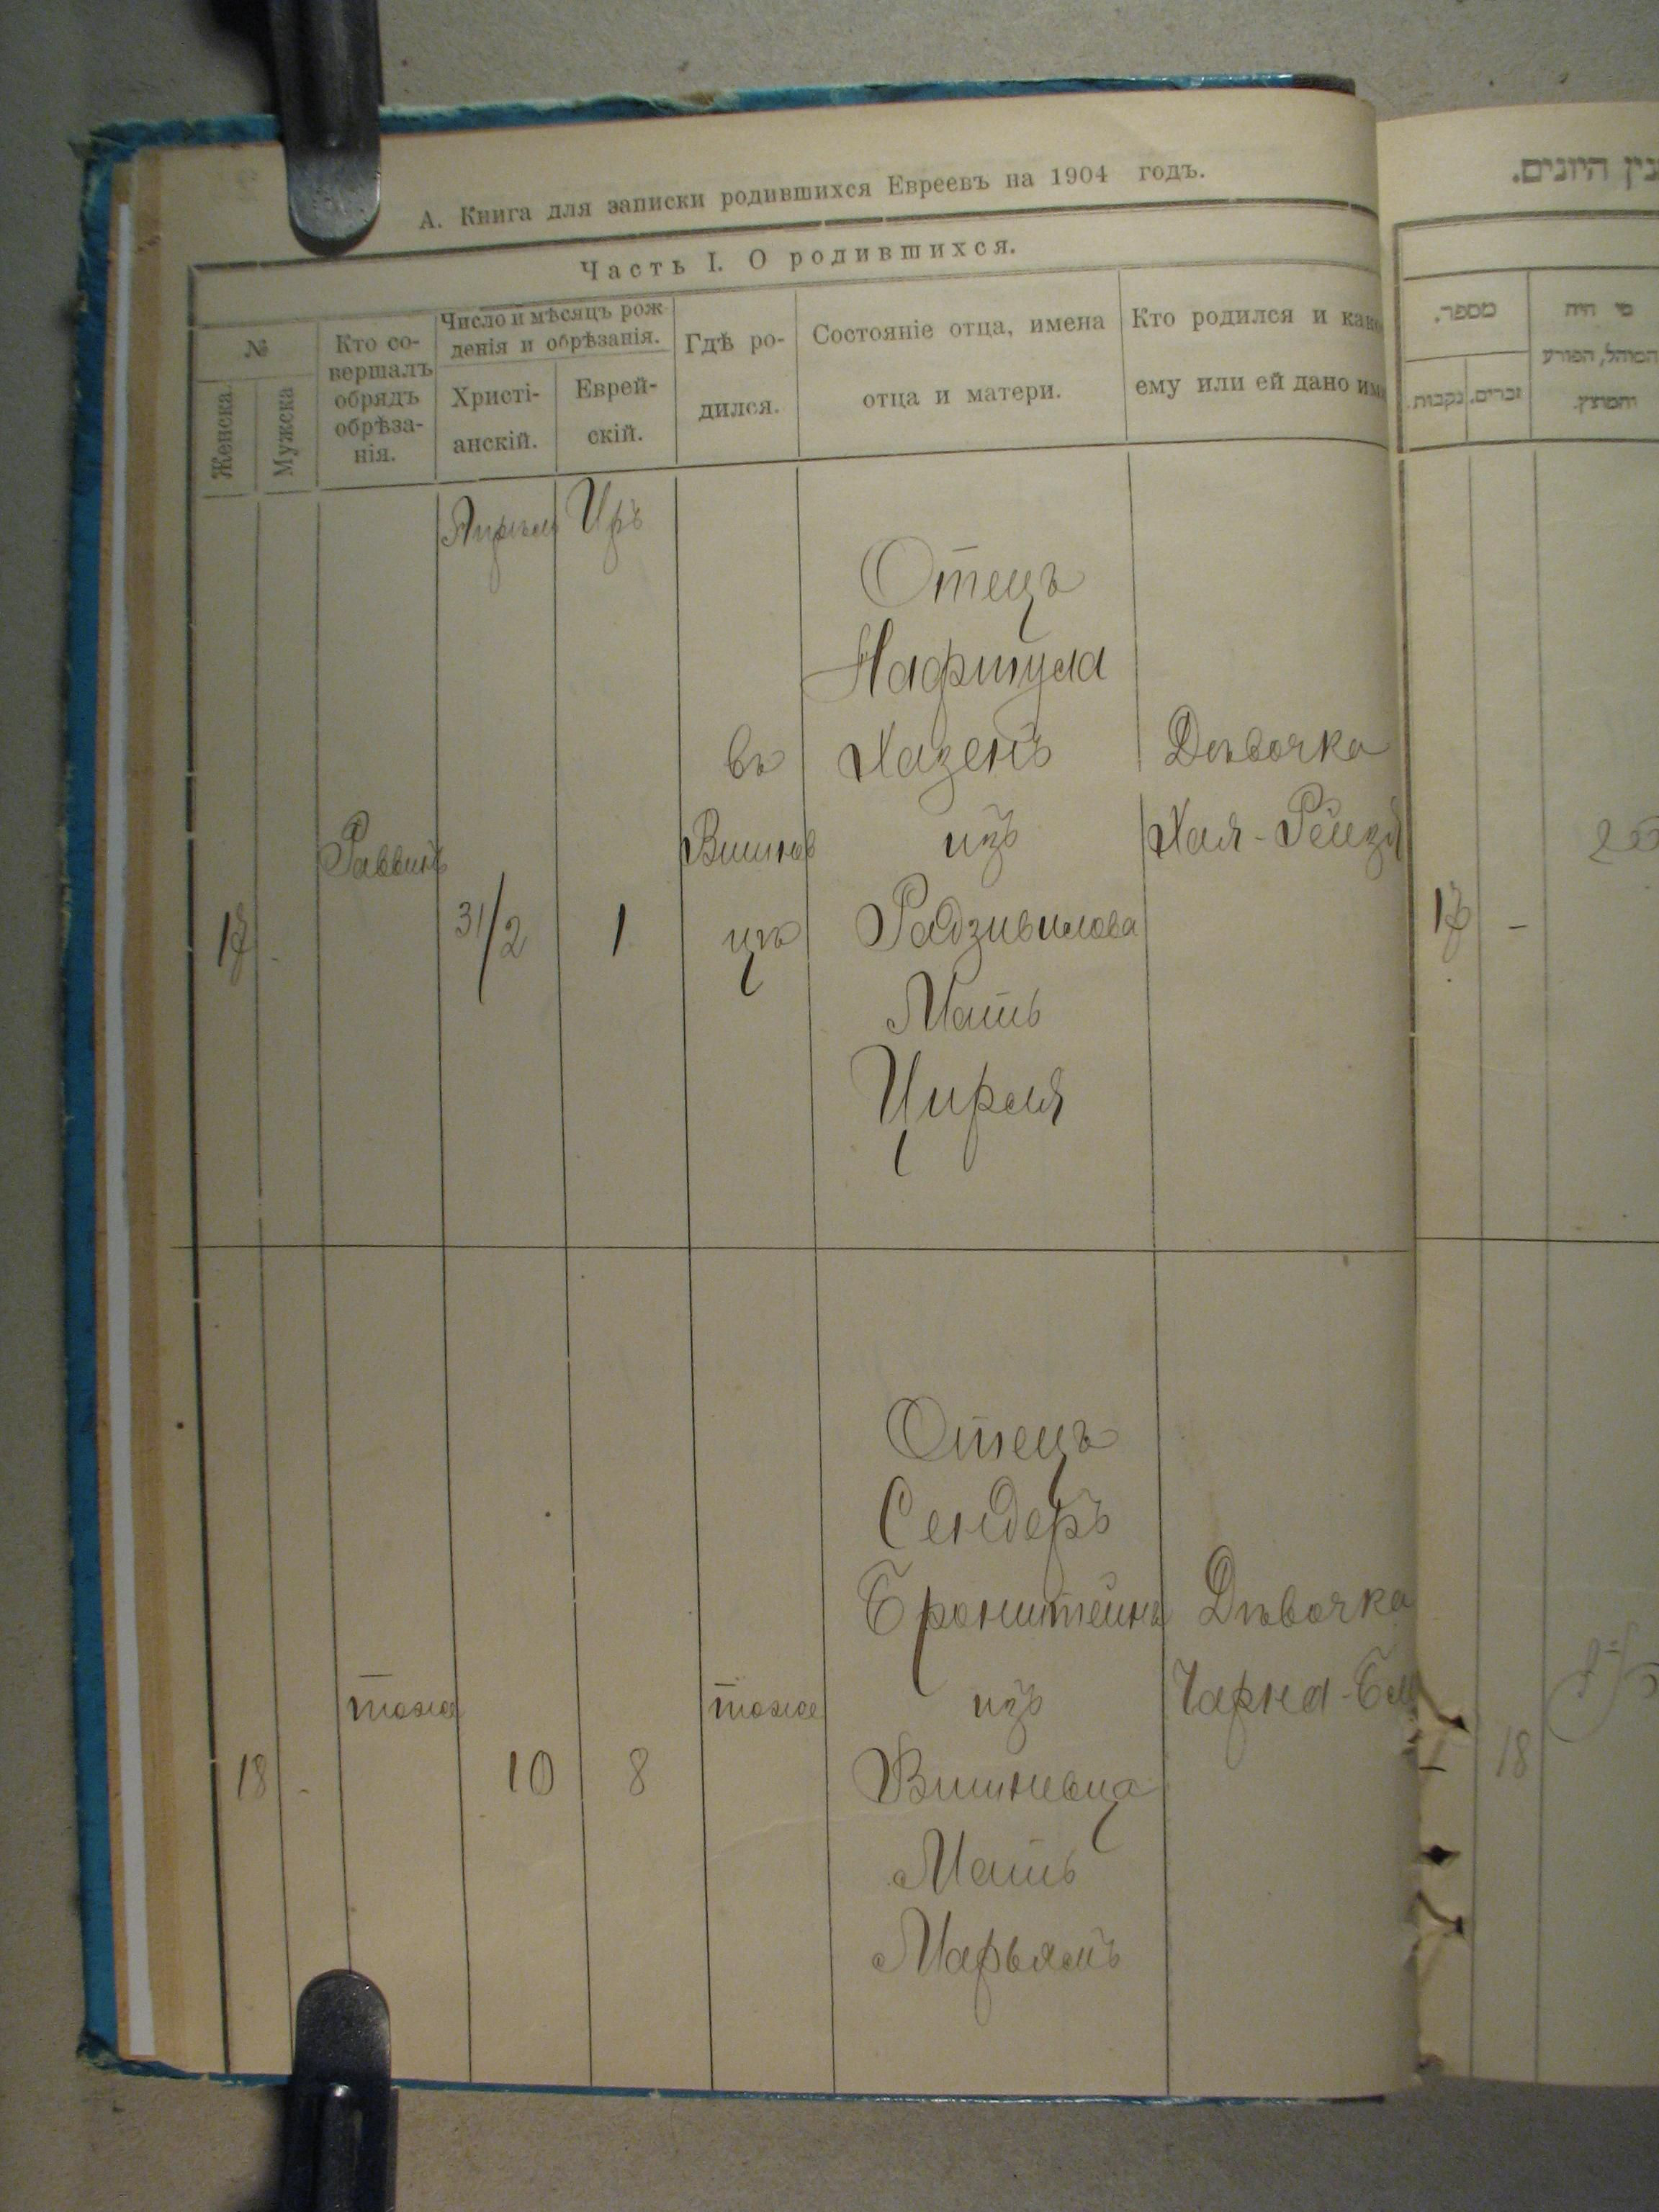 А. Книга для записки родившихся Евреевъ на 1904 годъ.
Часть I. О родившихся.
№
Женска
Мужска
Кто со-
вершалъ
обрядъ
обрѣза-
нія.
Число и мѣсяцъ рож-
денія и обрѣзанія.
Христі-
анскій.
Еврей-
скій.
Гдѣ ро-
дился.
Состояніе отца, имена
отца и матери.
Кто родился и как
ему или ей дано им
Апрель
Иръ
Отецъ
Нафтула
въ Хазенъ Дѣвочка
Раввинъ Вишнев изъ Хая-Рейзя
17 - 31/2 1 цѣ Радзивилова
Мать
Цирля
Отецъ
Сендеръ
Бронштейнъ Дѣвочка
тоже тоже изъ Чарна-
18 - 10 8 Вишневца
Мать
Марьямъ
היונים.
מספר.
זכרים.
נקבות.
מי היה
המוהל, הפורע
והמוצץ.
17 -
18